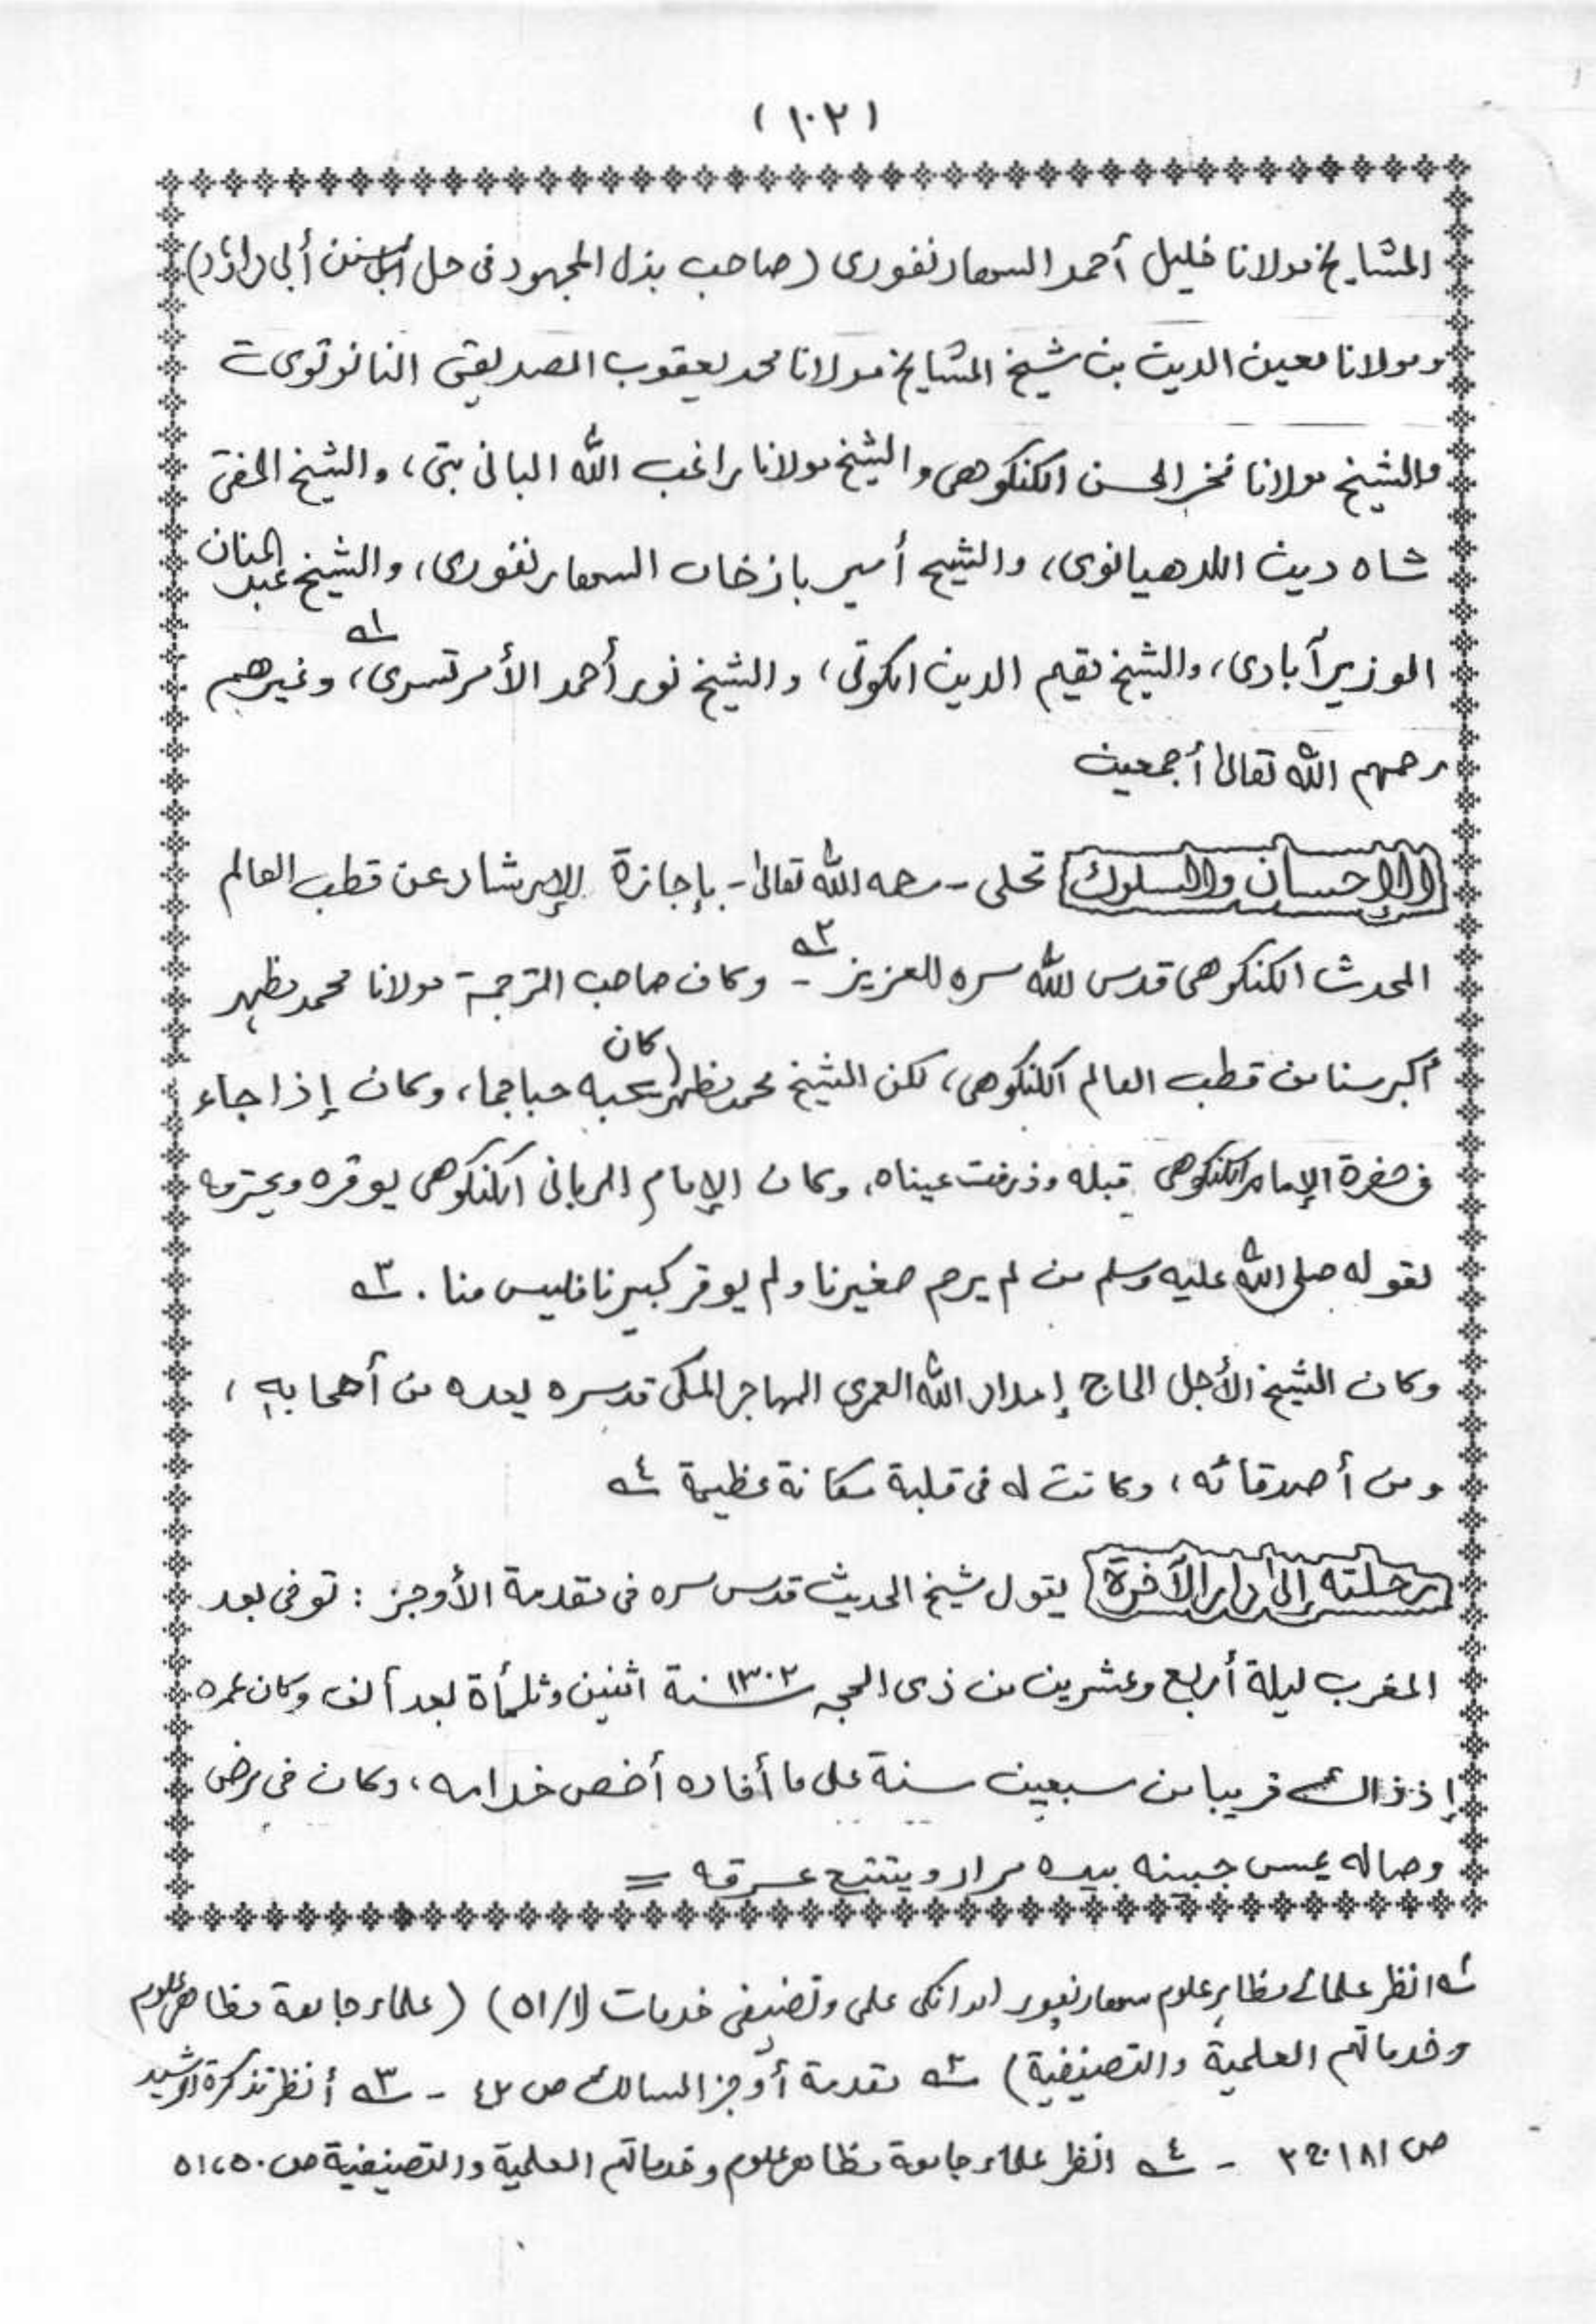 (١٠٢)
المشايخ مولانا خليل أحمد السهارنفورى (صاحب بذل المجهود فى حل سنن أبى داؤد)
ومولانا معين الدين بن شيخ المشايخ مولانا محمد يعقوب الصديقى النانوتوى
والشيخ مولانا فخر الحسن الكنكوهى والشيخ مولانا راغب الله البانى بتى، والشيخ المفتى
شاه دين اللدهيانوى، والشيخ أمير باز خان السهارنفورى، والشيخ عبد المنان
الوزير آبادى، والشيخ مقيم الدين الكوتى، والشيخ نور أحمد الأمرتسرى، ١ـه وغيرهم
رحمهم الله تعالىٰ أجمعين
الإحسان والسلوك تحلى - رحمه الله تعالىٰ - بإجازة الإرشاد عن قطب العالم
المحدث الكنكوهى قدس الله سره العزيز ٢ـه - وكان صاحب الترجمة مولانا محمد مظهر
أكبر سنا من قطب العالم الكنكوهى، لكن الشيخ محمد مظهر كان يحبه حبا جما، وكان إذا جاء
فى حضرة الإمام الكنكوهى قبله وذرفت عيناه، وكان الإمام الربانى الكنكوهى يوقره ويحترمه
لقوله صلى الله عليه وسلم من لم يرحم صغيرنا ولم يوقر كبيرنا فليس منا. ٣ـه
وكان الشيخ الأجل الحاج إمداد الله العمرى المهاجر المكى قدسره يعده من أصحابه،
ومن أصدقائه، وكانت له فى قلبه مكانة عظيمة ٤ـه
رحلته إلىٰ دار الآخرة يقول شيخ الحديث قدس سره فى مقدمة الأوجز: توفى بعد
المغرب ليلة أربع وعشرين من ذى الحجه ١٣٠٢ سنة اثنين وثلثمأة بعد ألف وكان عمره
إذ ذاك قريبا من سبعين سنة على ما أفاده أخص خدامه، وكان فى مرض
وصاله يمس جبينه بيده مرارا ويتتبع عرقه =
١ـه انظر علمائے مظاہر علوم سهارنپور اور انكى علمى وتصنيفى خدمات (١/٥١) (علماء جامعة مظاهر علوم
وخدماتهم العلمية والتصنيفية) ٢ـه مقدمة أوجز المسالك ص ٤٢ - ٣ـه أنظر تذكرة الرشيد
ص ١٨١ ج ٢ - ٤ـه انظر علماء جامعة مظاهر علوم وخدماتهم العلمية والتصنيفية ص ٥١،٥٠